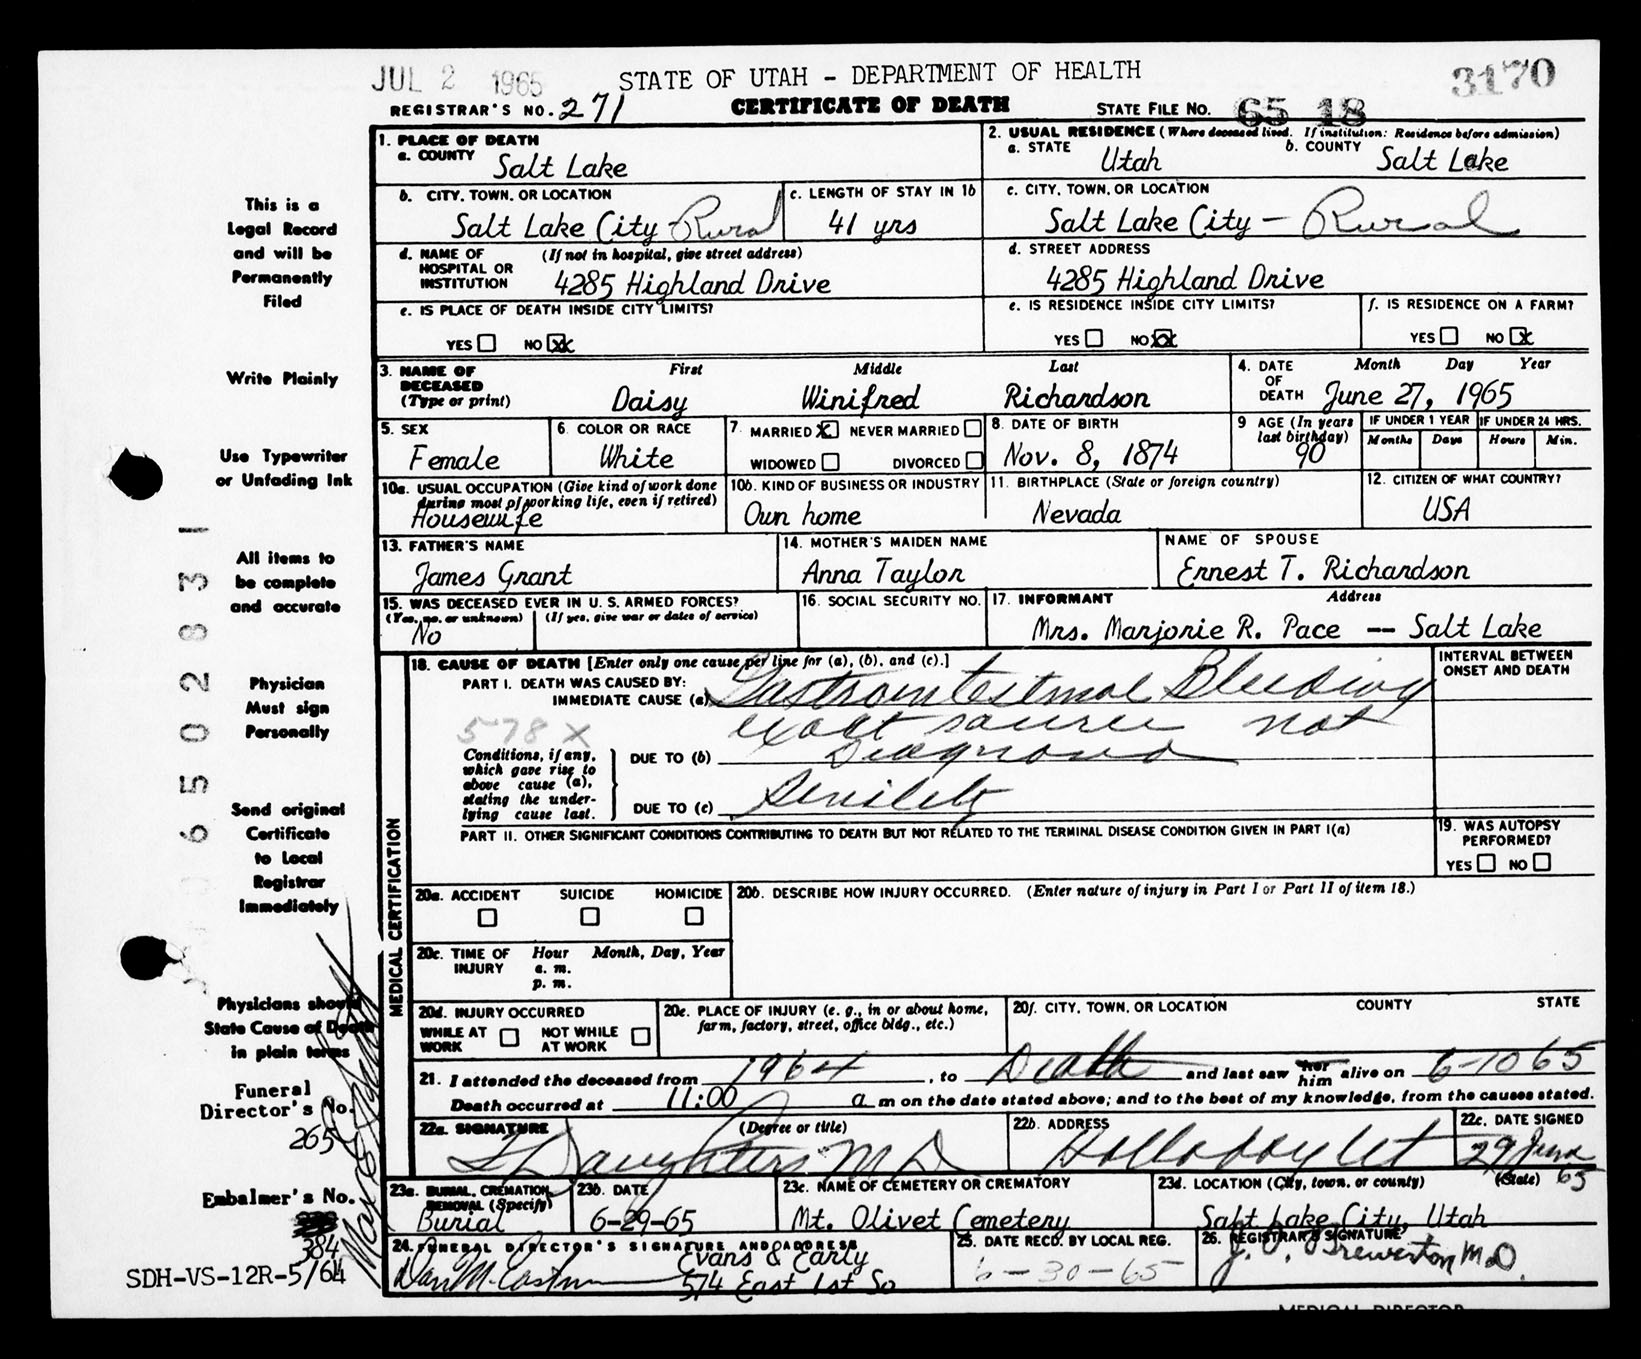 JUL 2 1965 STATE OF UTAH - DEPARTMENT OF HEALTH 3170
REGISTRAR'S NO. 271 CERTIFICATE OF DEATH STATE FILE NO. 65 18
1. PLACE OF DEATH
a. COUNTY Salt Lake
2. USUAL RESIDENCE (Where deceased lived. If institution: Residence before admission)
a. STATE Utah b. COUNTY Salt Lake
b. CITY, TOWN, OR LOCATION Salt Lake City - Rural
c. LENGTH OF STAY IN 1b 41 yrs
c. CITY, TOWN, OR LOCATION Salt Lake City - Rural
d. NAME OF HOSPITAL OR INSTITUTION (If not in hospital, give street address) 4285 Highland Drive
d. STREET ADDRESS 4285 Highland Drive
e. IS PLACE OF DEATH INSIDE CITY LIMITS?
YES NO XX
e. IS RESIDENCE INSIDE CITY LIMITS?
YES NO XX
f. IS RESIDENCE ON A FARM?
YES NO X
3. NAME OF DECEASED (Type or print)
First Middle Last
Daisy Winifred Richardson
4. DATE OF DEATH Month Day Year
June 27, 1965
5. SEX Female
6. COLOR OR RACE White
7. MARRIED X NEVER MARRIED
WIDOWED DIVORCED
8. DATE OF BIRTH Nov. 8, 1874
9 AGE (In years last birthday) 90
IF UNDER 1 YEAR Months Days
IF UNDER 24 HRS. Hours Min.
10a. USUAL OCCUPATION (Give kind of work done during most of working life, even if retired) Housewife
10b. KIND OF BUSINESS OR INDUSTRY Own home
11. BIRTHPLACE (State or foreign country) Nevada
12. CITIZEN OF WHAT COUNTRY? USA
13. FATHER'S NAME James Grant
14. MOTHER'S MAIDEN NAME Anna Taylor
NAME OF SPOUSE Ernest T. Richardson
15. WAS DECEASED EVER IN U. S. ARMED FORCES?
(Yes, no, or unknown) (If yes, give war or dates of service)
No
16. SOCIAL SECURITY NO.
17. INFORMANT Address
Mrs. Marjorie R. Pace -- Salt Lake
MEDICAL CERTIFICATION
18. CAUSE OF DEATH [Enter only one cause per line for (a), (b), and (c).]
INTERVAL BETWEEN ONSET AND DEATH
PART I. DEATH WAS CAUSED BY:
IMMEDIATE CAUSE (a) Gastrointestinal Bleeding
578 X exact source not
Conditions, if any, which gave rise to above cause (a), stating the underlying cause last.
DUE TO (b) Diagnosed
DUE TO (c) Senility
PART II. OTHER SIGNIFICANT CONDITIONS CONTRIBUTING TO DEATH BUT NOT RELATED TO THE TERMINAL DISEASE CONDITION GIVEN IN PART I(a)
19. WAS AUTOPSY PERFORMED?
YES NO
20a. ACCIDENT SUICIDE HOMICIDE
20b. DESCRIBE HOW INJURY OCCURRED. (Enter nature of injury in Part I or Part II of item 18.)
20c. TIME OF INJURY Hour a. m. p. m. Month, Day, Year
20d. INJURY OCCURRED
WHILE AT WORK NOT WHILE AT WORK
20e. PLACE OF INJURY (e. g., in or about home, farm, factory, street, office bldg., etc.)
20f. CITY, TOWN, OR LOCATION COUNTY STATE
21. I attended the deceased from 1964, to Death and last saw her him alive on 6-10 65
Death occurred at 11:00 a m on the date stated above; and to the best of my knowledge, from the causes stated.
22a. SIGNATURE (Degree or title)
Daughters MD
22b. ADDRESS Holladay Ut
22c. DATE SIGNED 29 June 65
23a. BURIAL, CREMATION, REMOVAL (Specify) Burial
23b. DATE 6-29-65
23c. NAME OF CEMETERY OR CREMATORY Mt. Olivet Cemetery
23d. LOCATION (City, town, or county) (State) Salt Lake City, Utah
24. FUNERAL DIRECTOR'S SIGNATURE AND ADDRESS
Evans & Early
574 East 1st So
25. DATE RECD. BY LOCAL REG. 6-30-65
26. REGISTRAR'S SIGNATURE
MEDICAL DIRECTOR
This is a
Legal Record
and will be
Permanently
Filed
Write Plainly
Use Typewriter
or Unfading Ink
All items to
be complete
and accurate
Physician
Must sign
Personally
Send original
Certificate
to Local
Registrar
Immediately
Physicians should
State Cause of Death
in plain terms
Funeral
Director's No.
265
Embalmer's No.
384
SDH-VS-12R-5/64
6502831